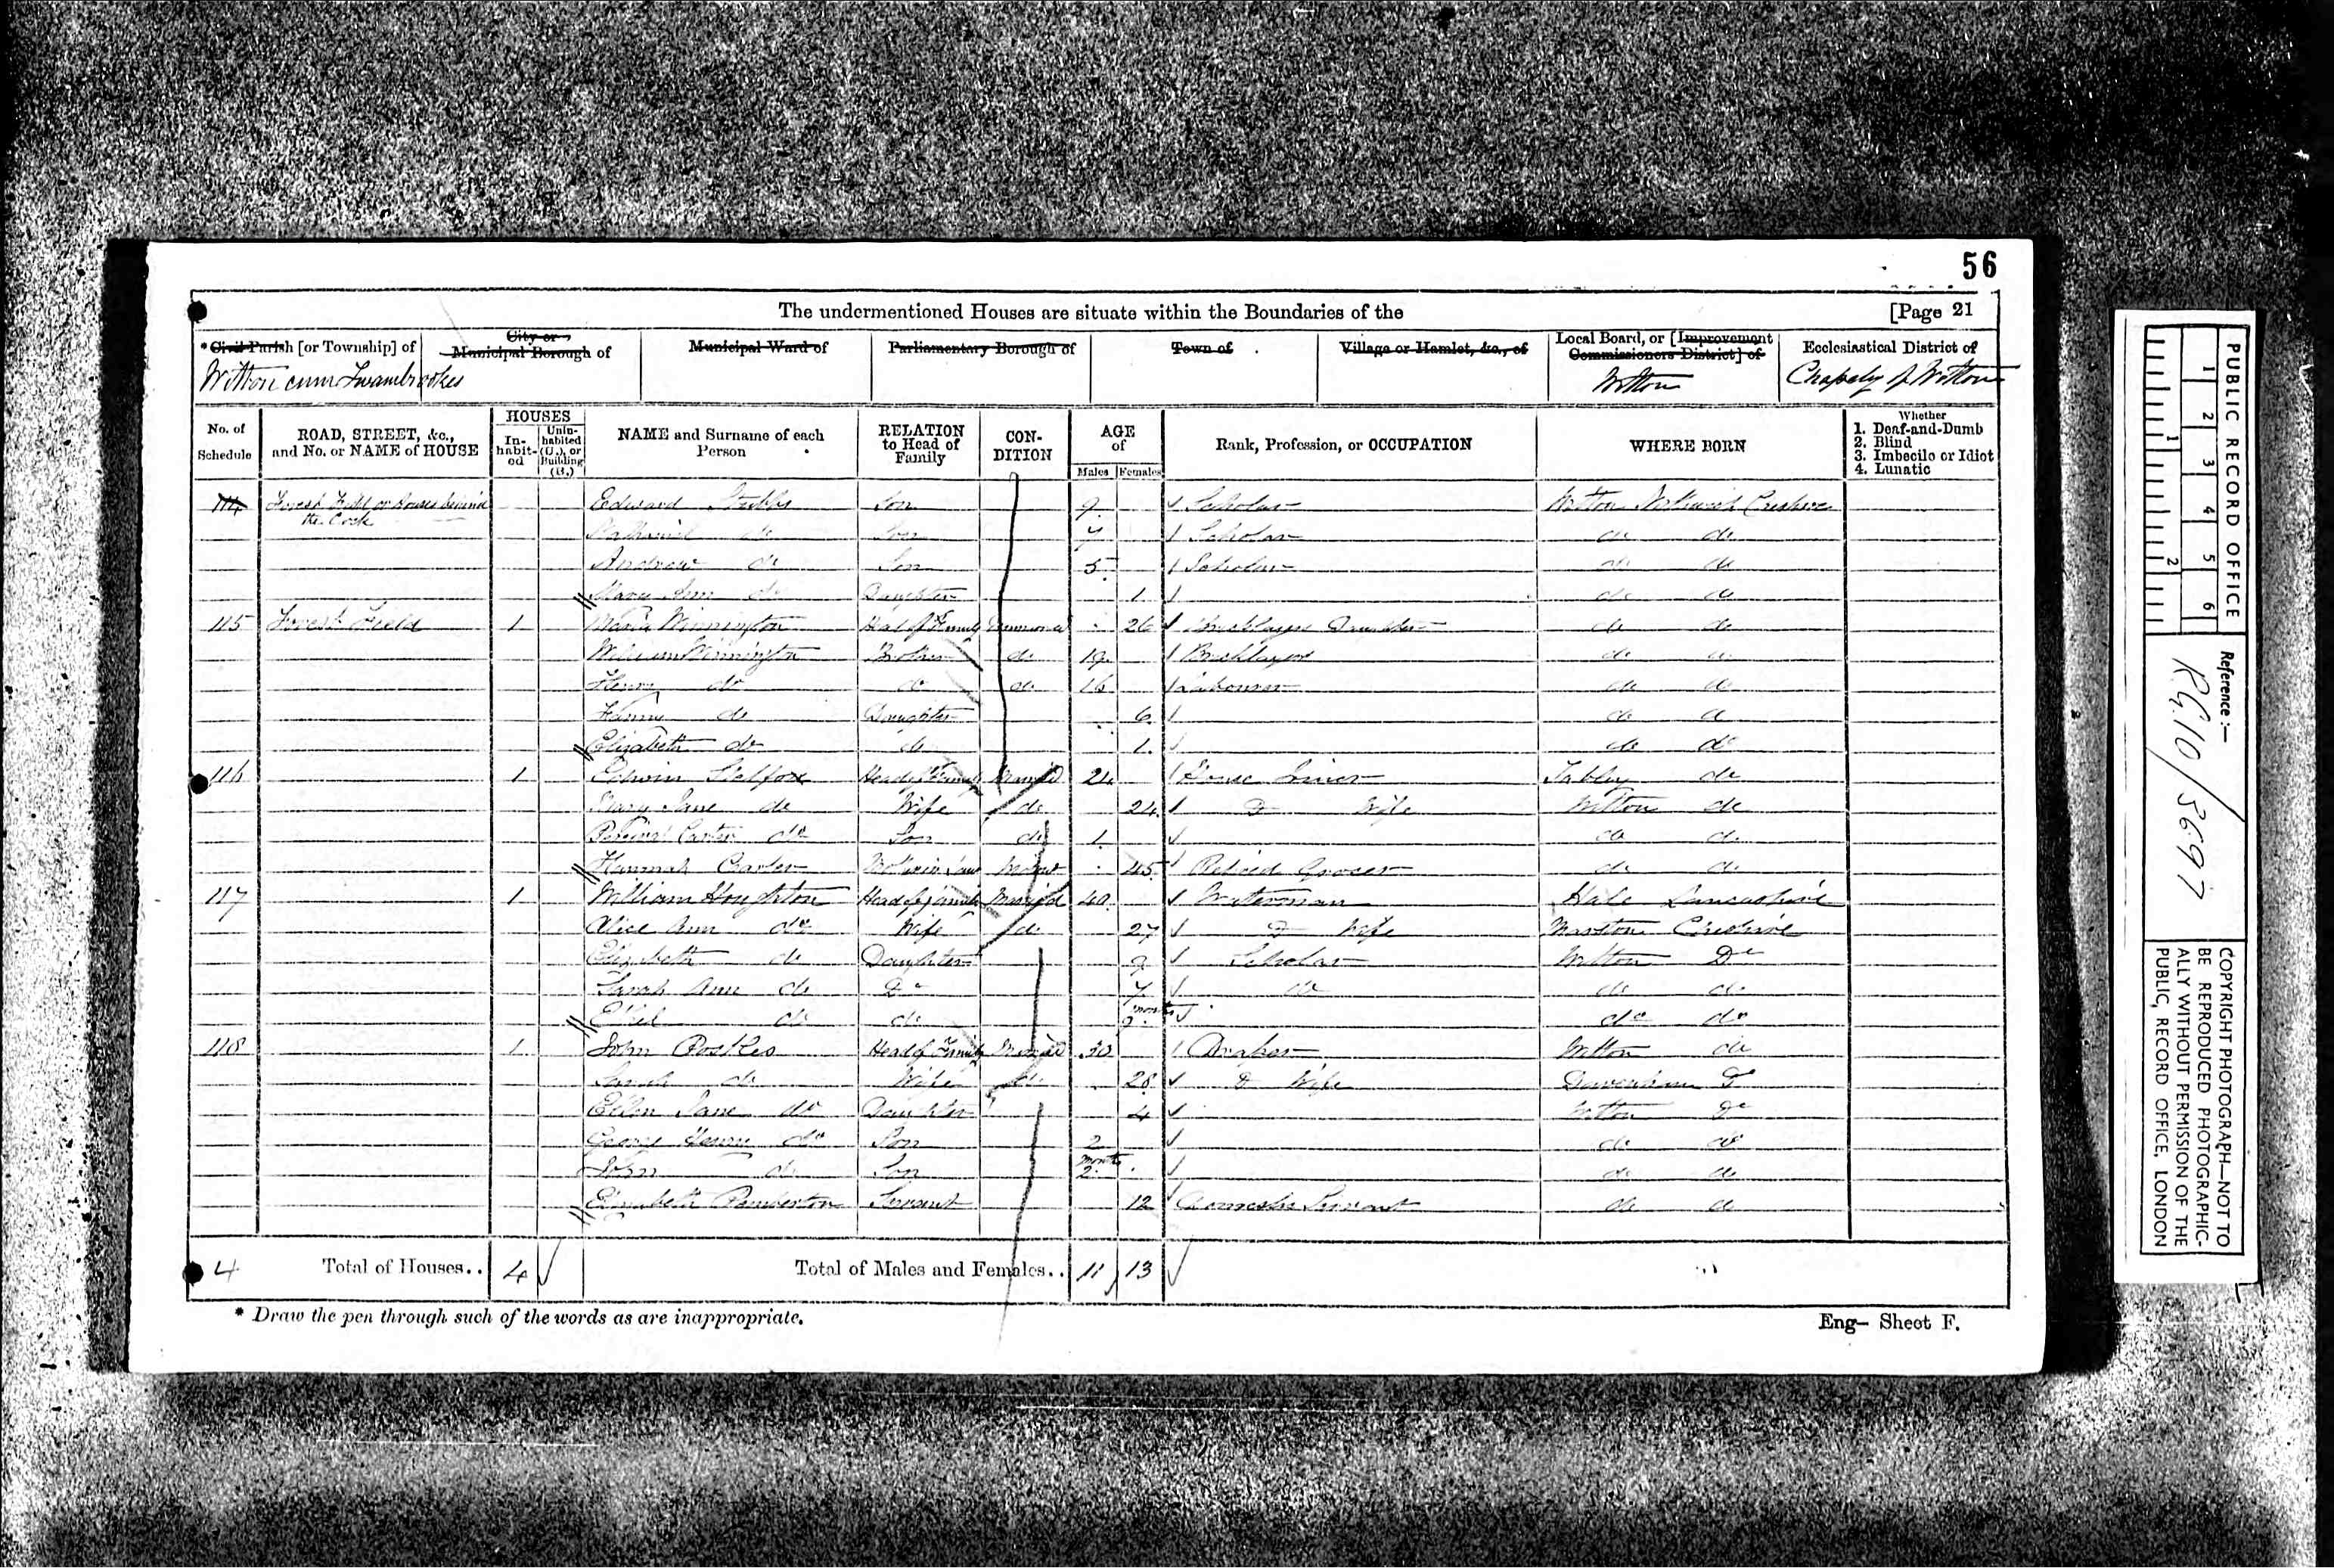 56
The undermentioned Houses are situate within the Boundaries of the [Page 21
* Civil Parish [or Township] of City or Municipal Borough of Municipal Ward of Parliamentary Borough of Town of Village or Hamlet, &c., of Local Board, or [Improvement Commissioners District] of Ecclesiastical District of
Witton cum Twambrookes Witton Chapelry of Witton
No. of Schedule ROAD, STREET, &c., and No. or NAME of HOUSE HOUSES Inhabited Uninhabited (U.), or Building (B.) NAME and Surname of each Person RELATION to Head of Family CONDITION AGE of Males Females Rank, Profession, or OCCUPATION WHERE BORN Whether 1. Deaf-and-Dumb 2. Blind 3. Imbecile or Idiot 4. Lunatic
114 Forest Field or Houses behind the Cock Edward Stubbs Son 9 Scholar Witton Northwich Cheshire
Nathaniel do Son 7 Scholar do do
Andrew do Son 5 Scholar do do
Mary Ann do Daughter 1 do do
115 Forest Field 1 Maria Winnington Head of Family Unmarried 26 Bricklayers Daughter do do
William Winnington Brother do 19 Bricklayer do do
Henry do do do 16 Labourer do do
Fanny do Daughter 6 do do
Elizabeth do do 1 do do
116 1 Edwin Stelfox Head of Family Married 24 House Joiner Tabley do
Mary Jane do Wife do 24 Do Wife Witton do
Percival Carter do Son do 1 do do
Hannah Carter Mother in Law Widow 45 Retired Grocer do do
117 1 William Houghton Head of Family Married 40 Waterman Hale Lancashire
Alice Ann do Wife do 27 Do Wife Marston Cheshire
Elizabeth do Daughter 9 Scholar Witton Do
Sarah Ann do Do 7 do do do
do do months 9 do do
118 1 John Postles Head of Family Married 30 Draper Witton do
Sarah do Wife do 28 Do Wife Davenham Do
Ellen Jane do Daughter 4 Witton Do
George Henry do Son 2 do do
John do Son months 2 do do
Elizabeth Pemberton Servant 12 Domestic Servant do do
4 Total of Houses.. 4 Total of Males and Females.. 11 13
* Draw the pen through such of the words as are inappropriate.
Eng- Sheet F.
PUBLIC RECORD OFFICE
1 2 3 4 5 6
1 2
Reference:-
RG10/3697
COPYRIGHT PHOTOGRAPH—NOT TO
BE REPRODUCED PHOTOGRAPHIC-
ALLY WITHOUT PERMISSION OF THE
PUBLIC RECORD OFFICE, LONDON